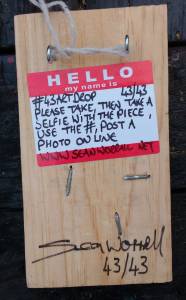 HELLO
my name is
#43ARTDROP 43/43
PLEASE TAKE, THEN TAKE A
SELFIE WITH THE PIECE,
USE THE #, POST A
PHOTO ON LINE.
WWW.SEANWORRALL.NET
Sean Worrall
43/43